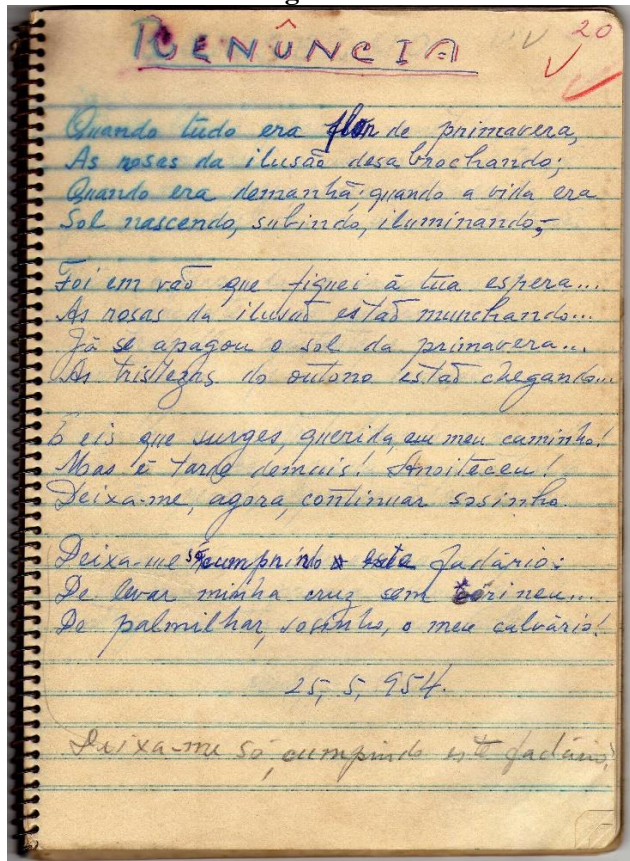 RENÚNCIA
20
Quando tudo era flor de primavera,
As rosas da ilusão desabrochando;
Quando era demanhã; quando a vida era
Sol nascendo, subindo, iluminando,-
Foi em vão que fiquei à tua espera...
As rosas da ilusão estão munchando...
Já se apagou o sol da primavera...
As tristezas do outono estão chegando...
E eis que surges, querida, em meu caminho!
Mas é tarde demais! Anoiteceu!
Deixa-me, agora, continuar sosinho.
Deixa-me só cumprindo este fadário:
De levar minha cruz sem Cirineu...
De palmilhar, sosinho, o meu calvário!
25, 5, 954.
Deixa-me só, cumprindo este fadário,